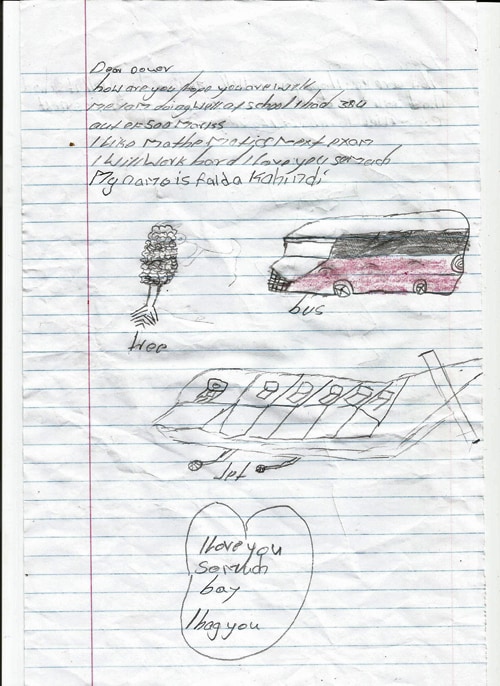 Dear Dower
how are you hope you are well
me I am doing well at school I had 384
out of 500 Marks
I like Mathematics next exam
I will work hard I love you so mach
My name is faida Kahindi
bus
tree
Jet
I love you
So mach
bay
I hag you